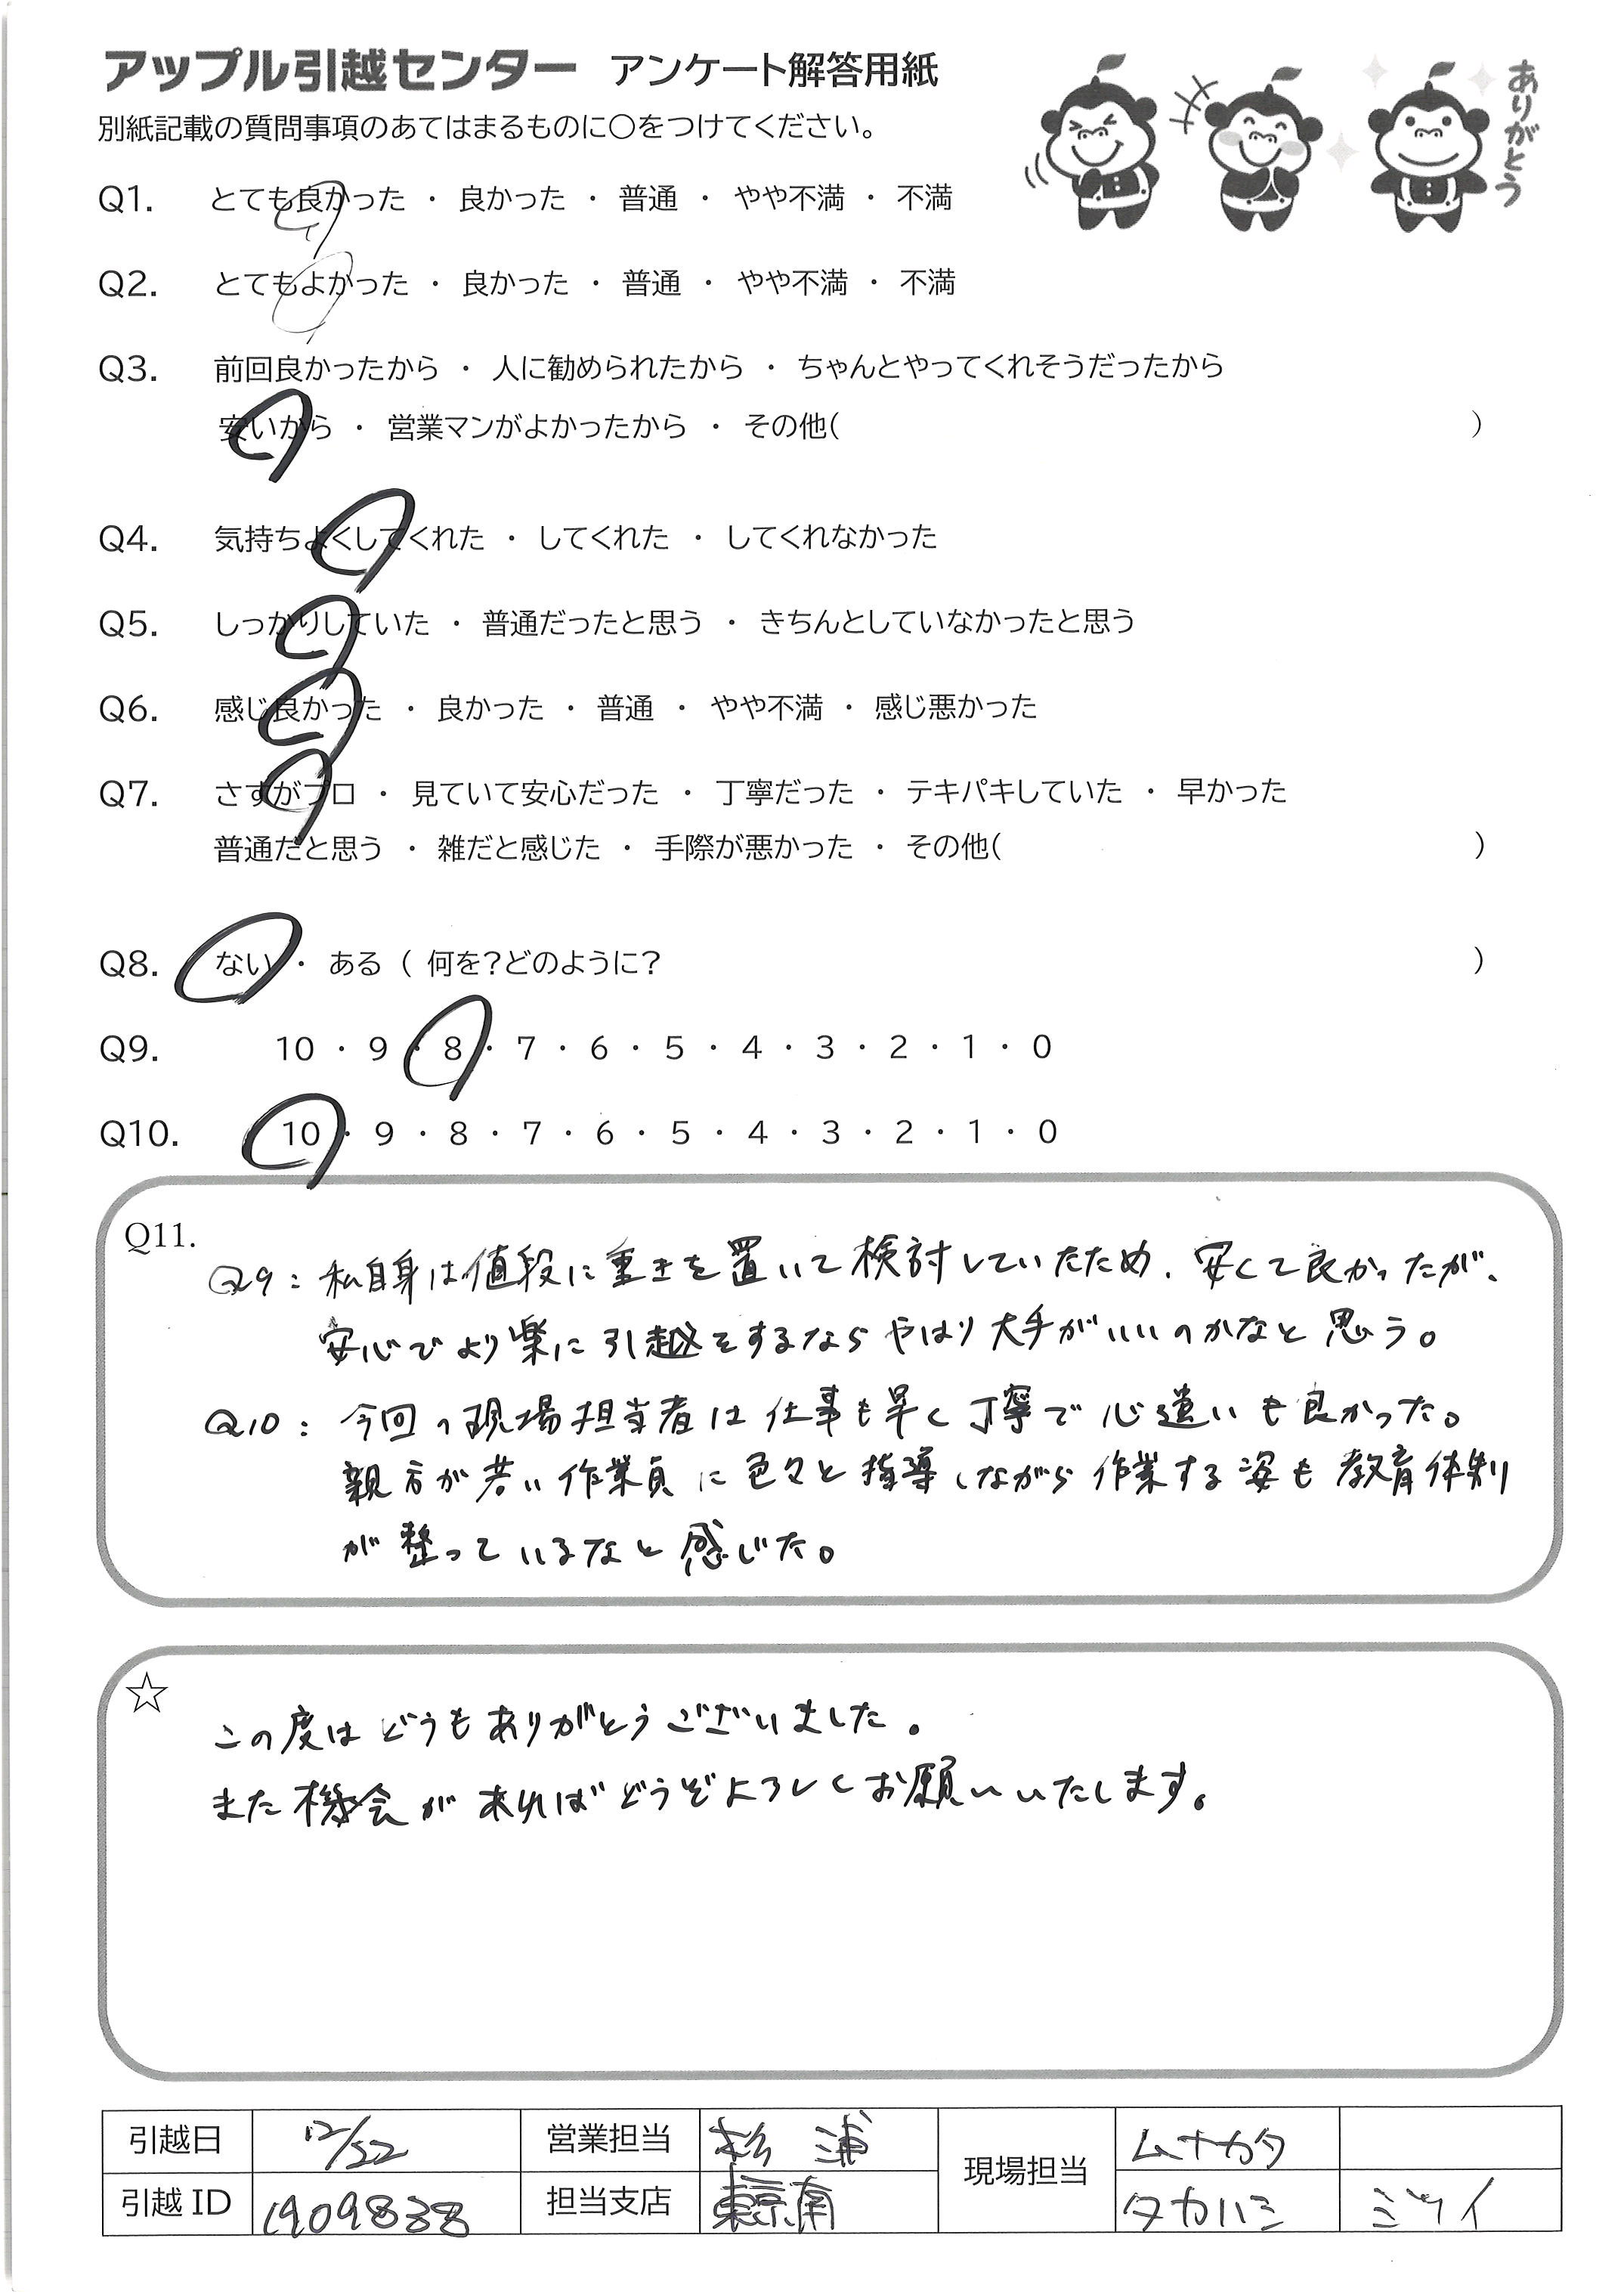 アップル引越センター アンケート解答用紙
ありがとう
別紙記載の質問事項のあてはまるものに〇をつけてください。
Q1. とても良かった ・ 良かった ・ 普通 ・ やや不満 ・ 不満
Q2. とてもよかった ・ 良かった ・ 普通 ・ やや不満 ・ 不満
Q3. 前回良かったから ・ 人に勧められたから ・ ちゃんとやってくれそうだったから
安いから ・ 営業マンがよかったから ・ その他( )
Q4. 気持ちよくしてくれた ・ してくれた ・ してくれなかった
Q5. しっかりしていた ・ 普通だったと思う ・ きちんとしていなかったと思う
Q6. 感じ良かった ・ 良かった ・ 普通 ・ やや不満 ・ 感じ悪かった
Q7. さすがプロ ・ 見ていて安心だった ・ 丁寧だった ・ テキパキしていた ・ 早かった
普通だと思う ・ 雑だと感じた ・ 手際が悪かった ・ その他( )
Q8. ない ・ ある ( 何を?どのように? )
Q9. 10 ・ 9 ・ 8 ・ 7 ・ 6 ・ 5 ・ 4 ・ 3 ・ 2 ・ 1 ・ 0
Q10. 10 ・ 9 ・ 8 ・ 7 ・ 6 ・ 5 ・ 4 ・ 3 ・ 2 ・ 1 ・ 0
Q11.
Q9：私自身は値段に重きを置いて検討していたため、安くて良かったが、
安心でより楽に引越をするならやはり大手がいいのかなと思う。
Q10：今回の現場担当者は仕事も早く丁寧で心遣いも良かった。
親方が若い作業員に色々と指導しながら作業する姿も教育体制
が整っているなと感じた。
☆
この度はどうもありがとうございました。
また機会があればどうぞよろしくお願いいたします。
引越日 12/22 営業担当 松浦 現場担当 ムナカタ
引越ID 1909838 担当支店 東京南 タカハシ ミツイ